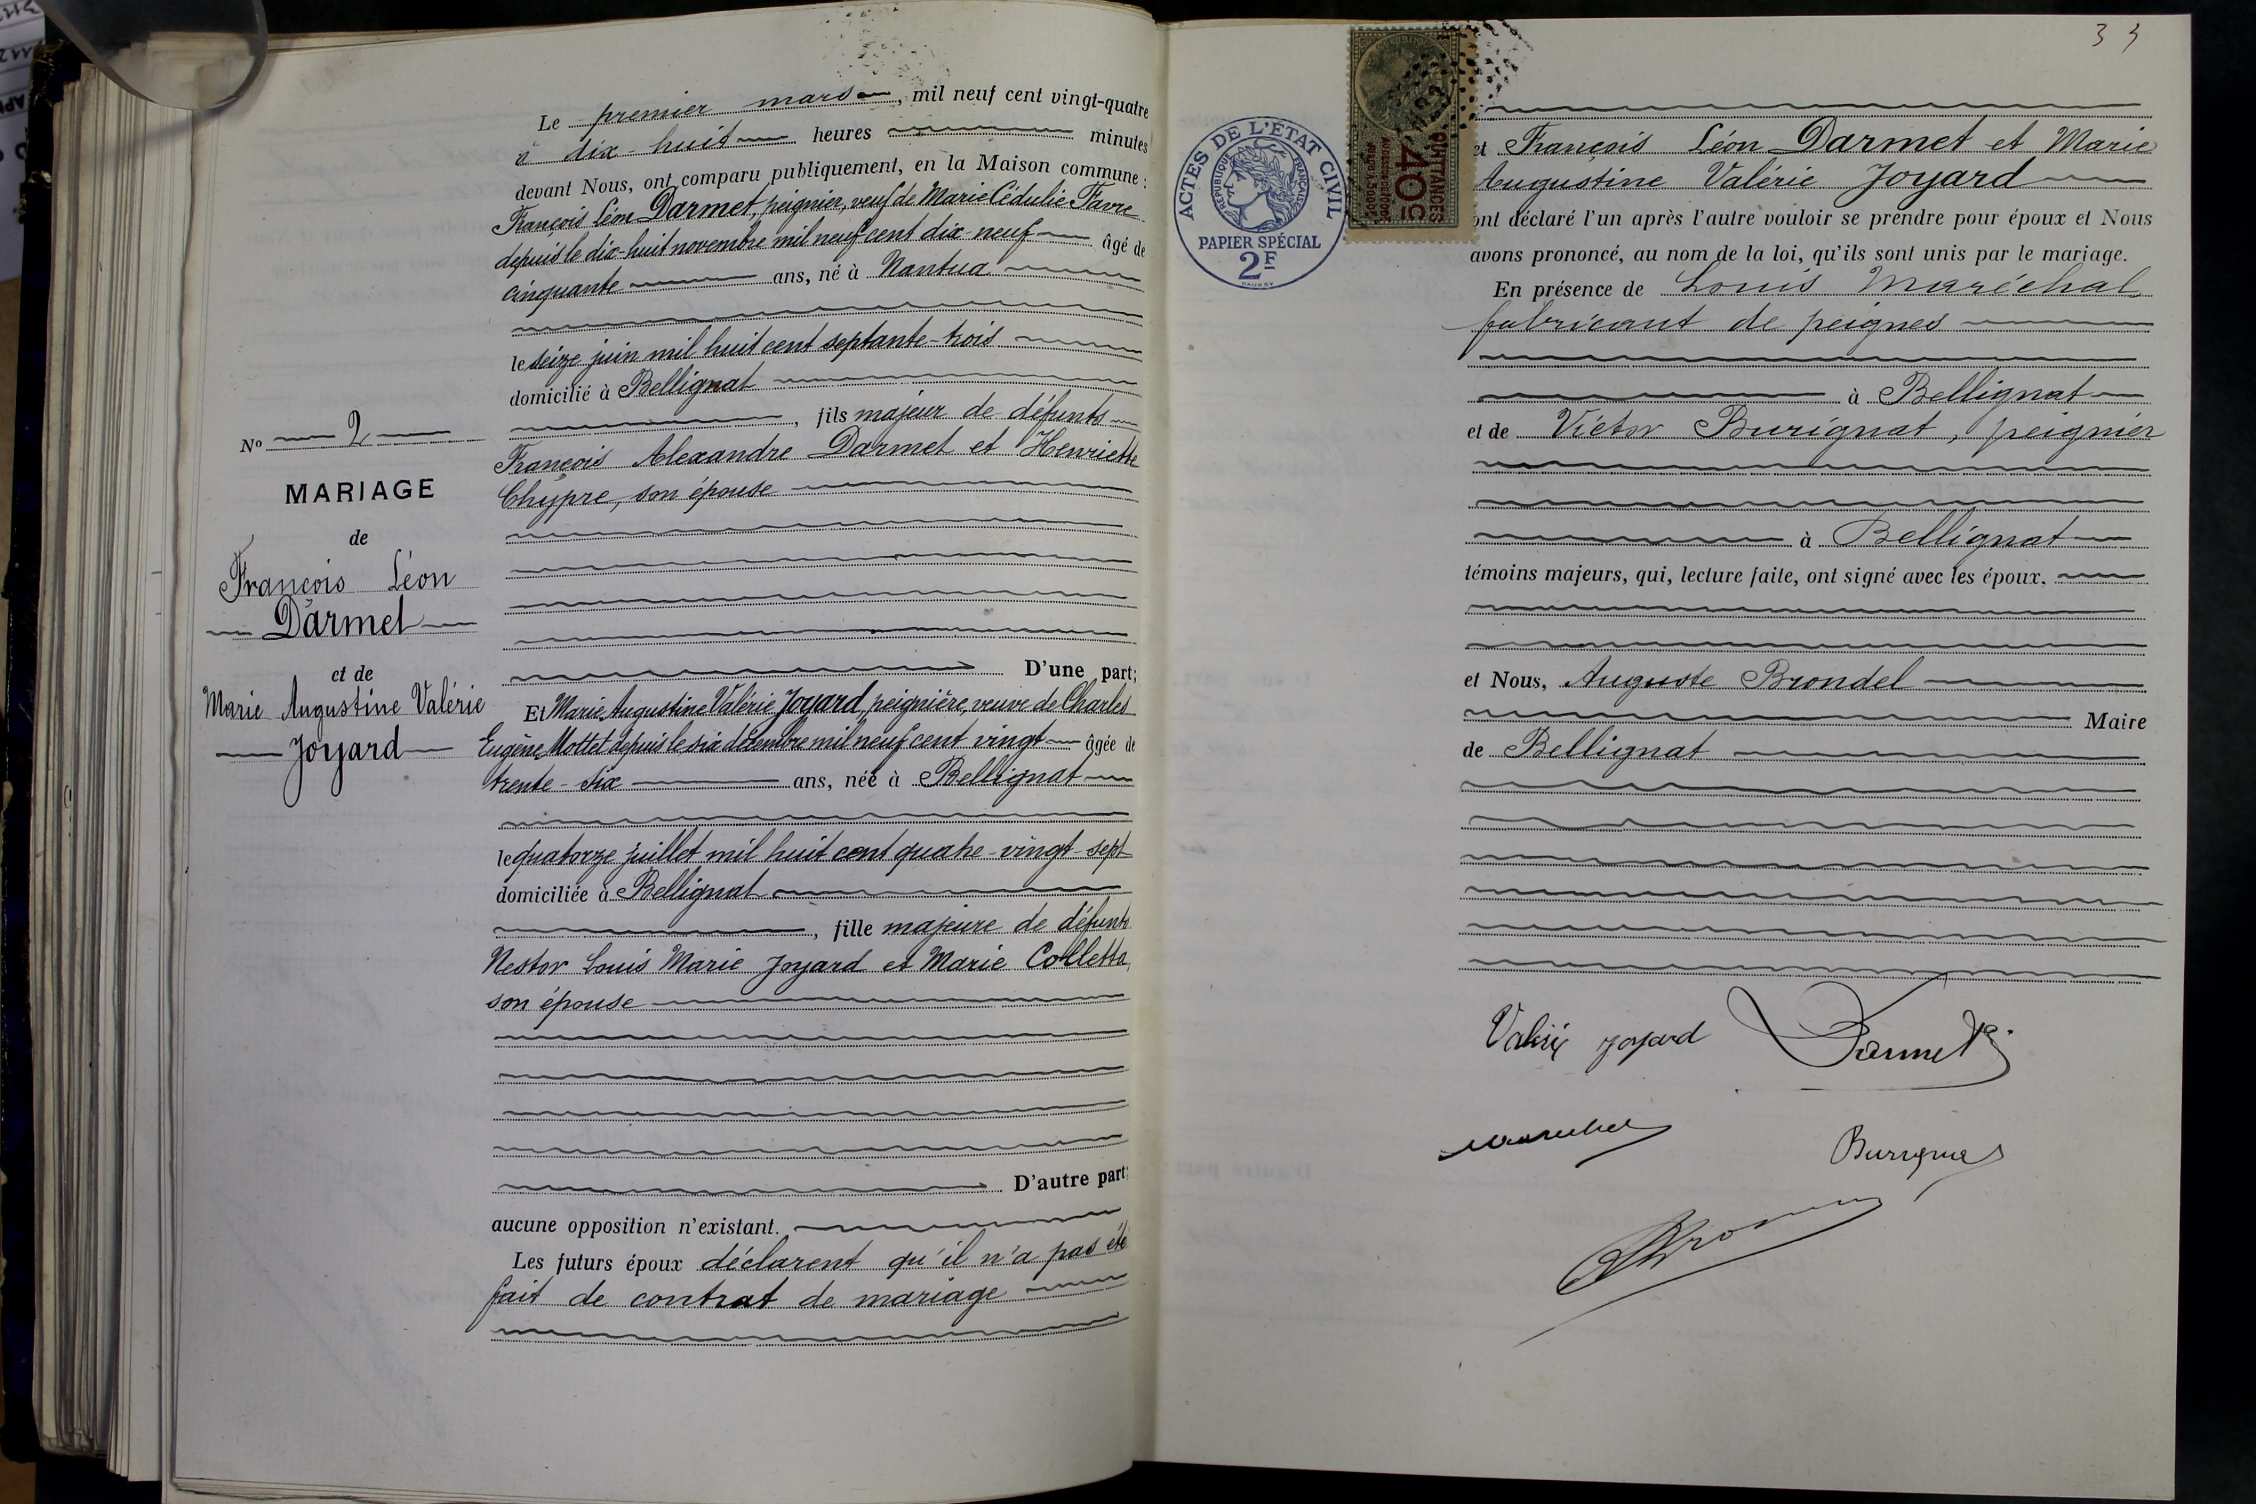 N° 2
MARIAGE
de
François Léon
Darmet
et de
Marie Augustine Valérie
Joyard
Le premier mars, mil neuf cent vingt-quatre
à dix-huit heures minutes
devant Nous, ont comparu publiquement, en la Maison commune :
François Léon Darmet, peignier, veuf de Marie Cédulie Favre
depuis le dix-huit novembre mil neuf cent dix-neuf âgé de
cinquante ans, né à Nantua
le seize juin mil huit cent septante-trois
domicilié à Bellignat
, fils majeur de défunts
François Alexandre Darmet et Henriette
Chypre, son épouse
D'une part;
Et Marie Augustine Valérie Joyard, peignière, veuve de Charles
Eugène Mottet depuis le six décembre mil neuf cent vingt âgée de
trente-six ans, née à Bellignat
le quatorze juillet mil huit cent quatre-vingt-sept
domiciliée à Bellignat
, fille majeure de défunts
Nestor Louis Marie Joyard et Marie Colletta,
son épouse
D'autre part;
aucune opposition n'existant.
Les futurs époux déclarent qu'il n'a pas été
fait de contrat de mariage
33
ACTES DE L'ÉTAT CIVIL
RÉPUBLIQUE FRANÇAISE
PAPIER SPÉCIAL
2F
QUITTANCES
50
et François Léon Darmet et Marie
Augustine Valérie Joyard
ont déclaré l'un après l'autre vouloir se prendre pour époux et Nous
avons prononcé, au nom de la loi, qu'ils sont unis par le mariage.
En présence de Louis Maréchal
fabricant de peignes
à Bellignat
et de Victor Burignat, peignier
à Bellignat
témoins majeurs, qui, lecture faite, ont signé avec les époux.
et Nous, Auguste Brondel
Maire
de Bellignat
Valérie Joyard Darmet
Marechal
Burignat